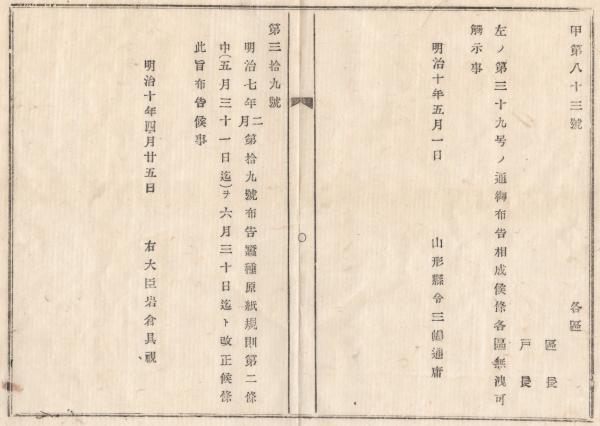 甲第八十三號
各區
區長
戸長
左ノ第三十九号ノ通御布告相成候條各區無洩可
觸示事
明治十年五月一日
山形縣令三島通庸
第三拾九號
明治七年二月第拾九號布告蠶種原紙規則第二條
中(五月三十一日迄)ヲ六月三十日迄ト改正候條
此旨布告候事
明治十年四月廿五日
右大臣岩倉具視